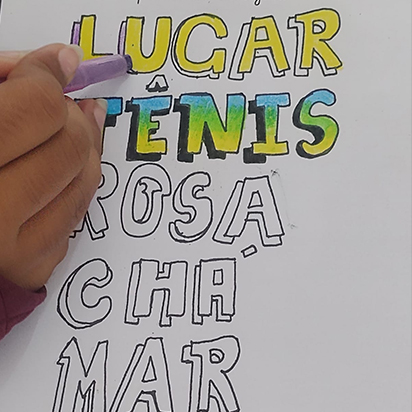 LUGAR
TÊNIS
ROSA
CHÁ
MAR